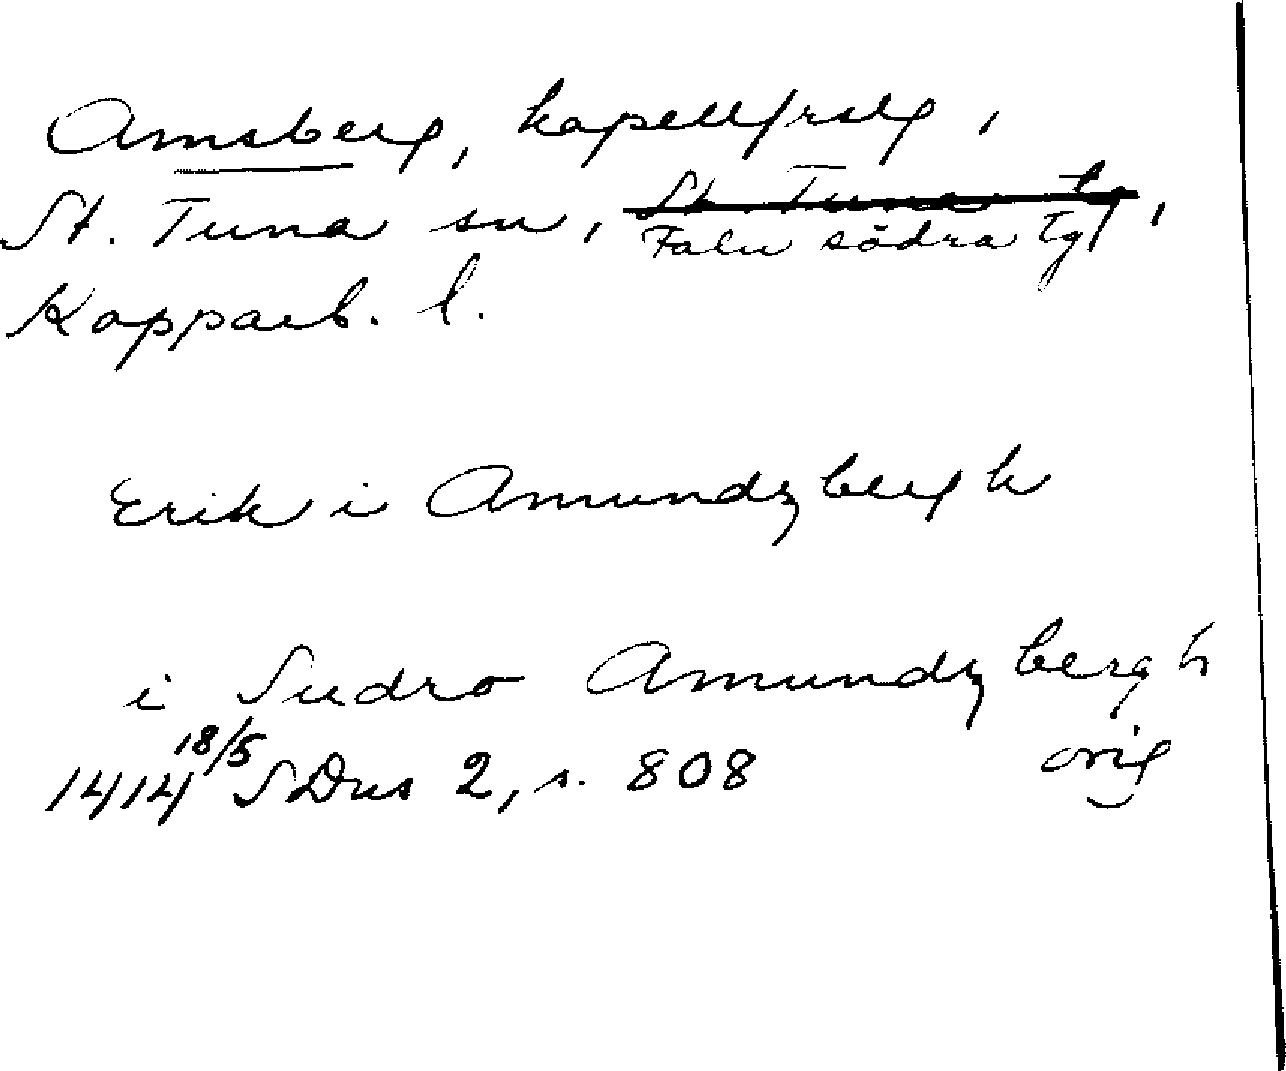 Amsberg, kapellfrslg,
St. Tuna sn, St. Tuna tg,
Falu södra tg
Kopparb. l.
Erik i Amundzbergh
i Sudro Amundzbergh
1414 18/5 SDns 2, s. 808 orig